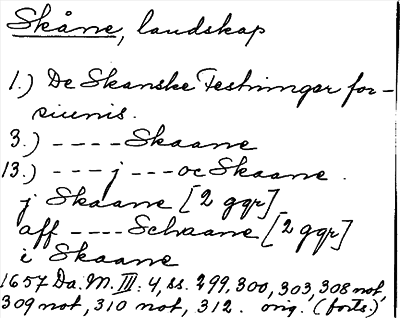 Skåne, landskap
1.) De Skanske Festninger for-
siunis.
3.) ---- Skaane
13.) --- j --- oc Skaane.
j Skaane [2 ggr]
aff ---- Schaane [2 ggr]
i Skaane
1657 Da. M. III: 4, ss. 299, 300, 303, 308 not,
309 not, 310 not, 312. orig. (forts.)